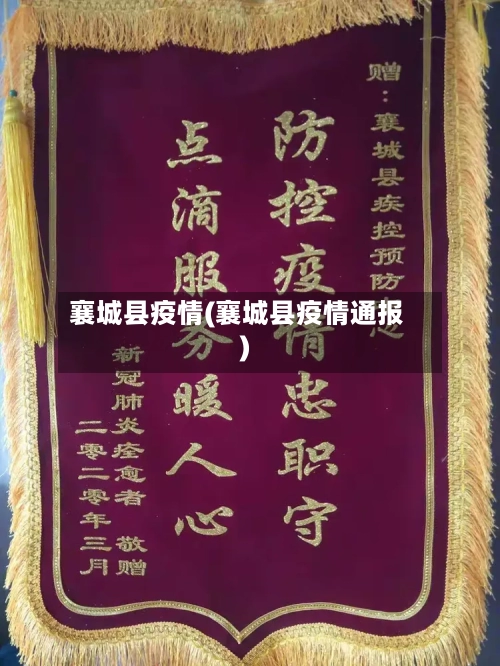 赠：襄城县疾控预防
防控疫情忠职守
点滴服务暖人心
新冠肺炎痊愈者 敬赠
二零二零年三月
襄城县疫情(襄城县疫情通报
)